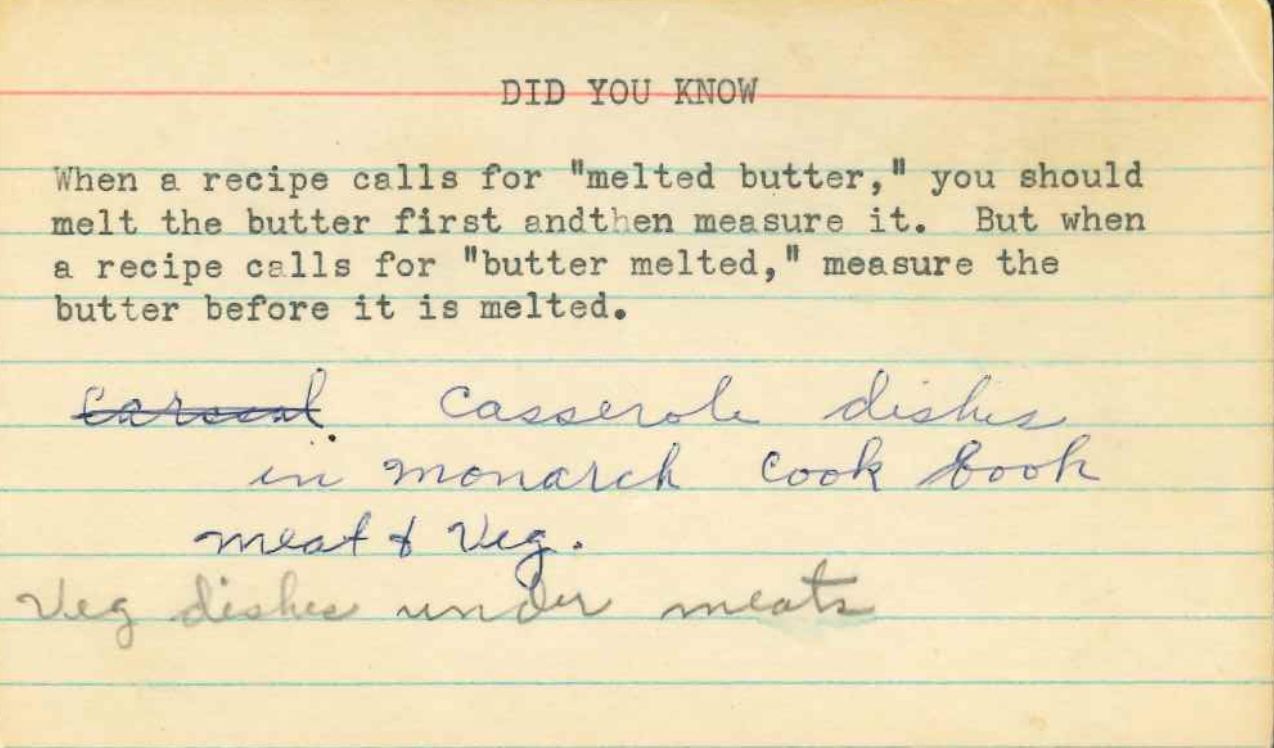 DID YOU KNOW
When a recipe calls for "melted butter," you should
melt the butter first andthen measure it. But when
a recipe calls for "butter melted," measure the
butter before it is melted.
Casserole dishes
in Monarch Cook book
meat & Veg.
Veg dishes under meats